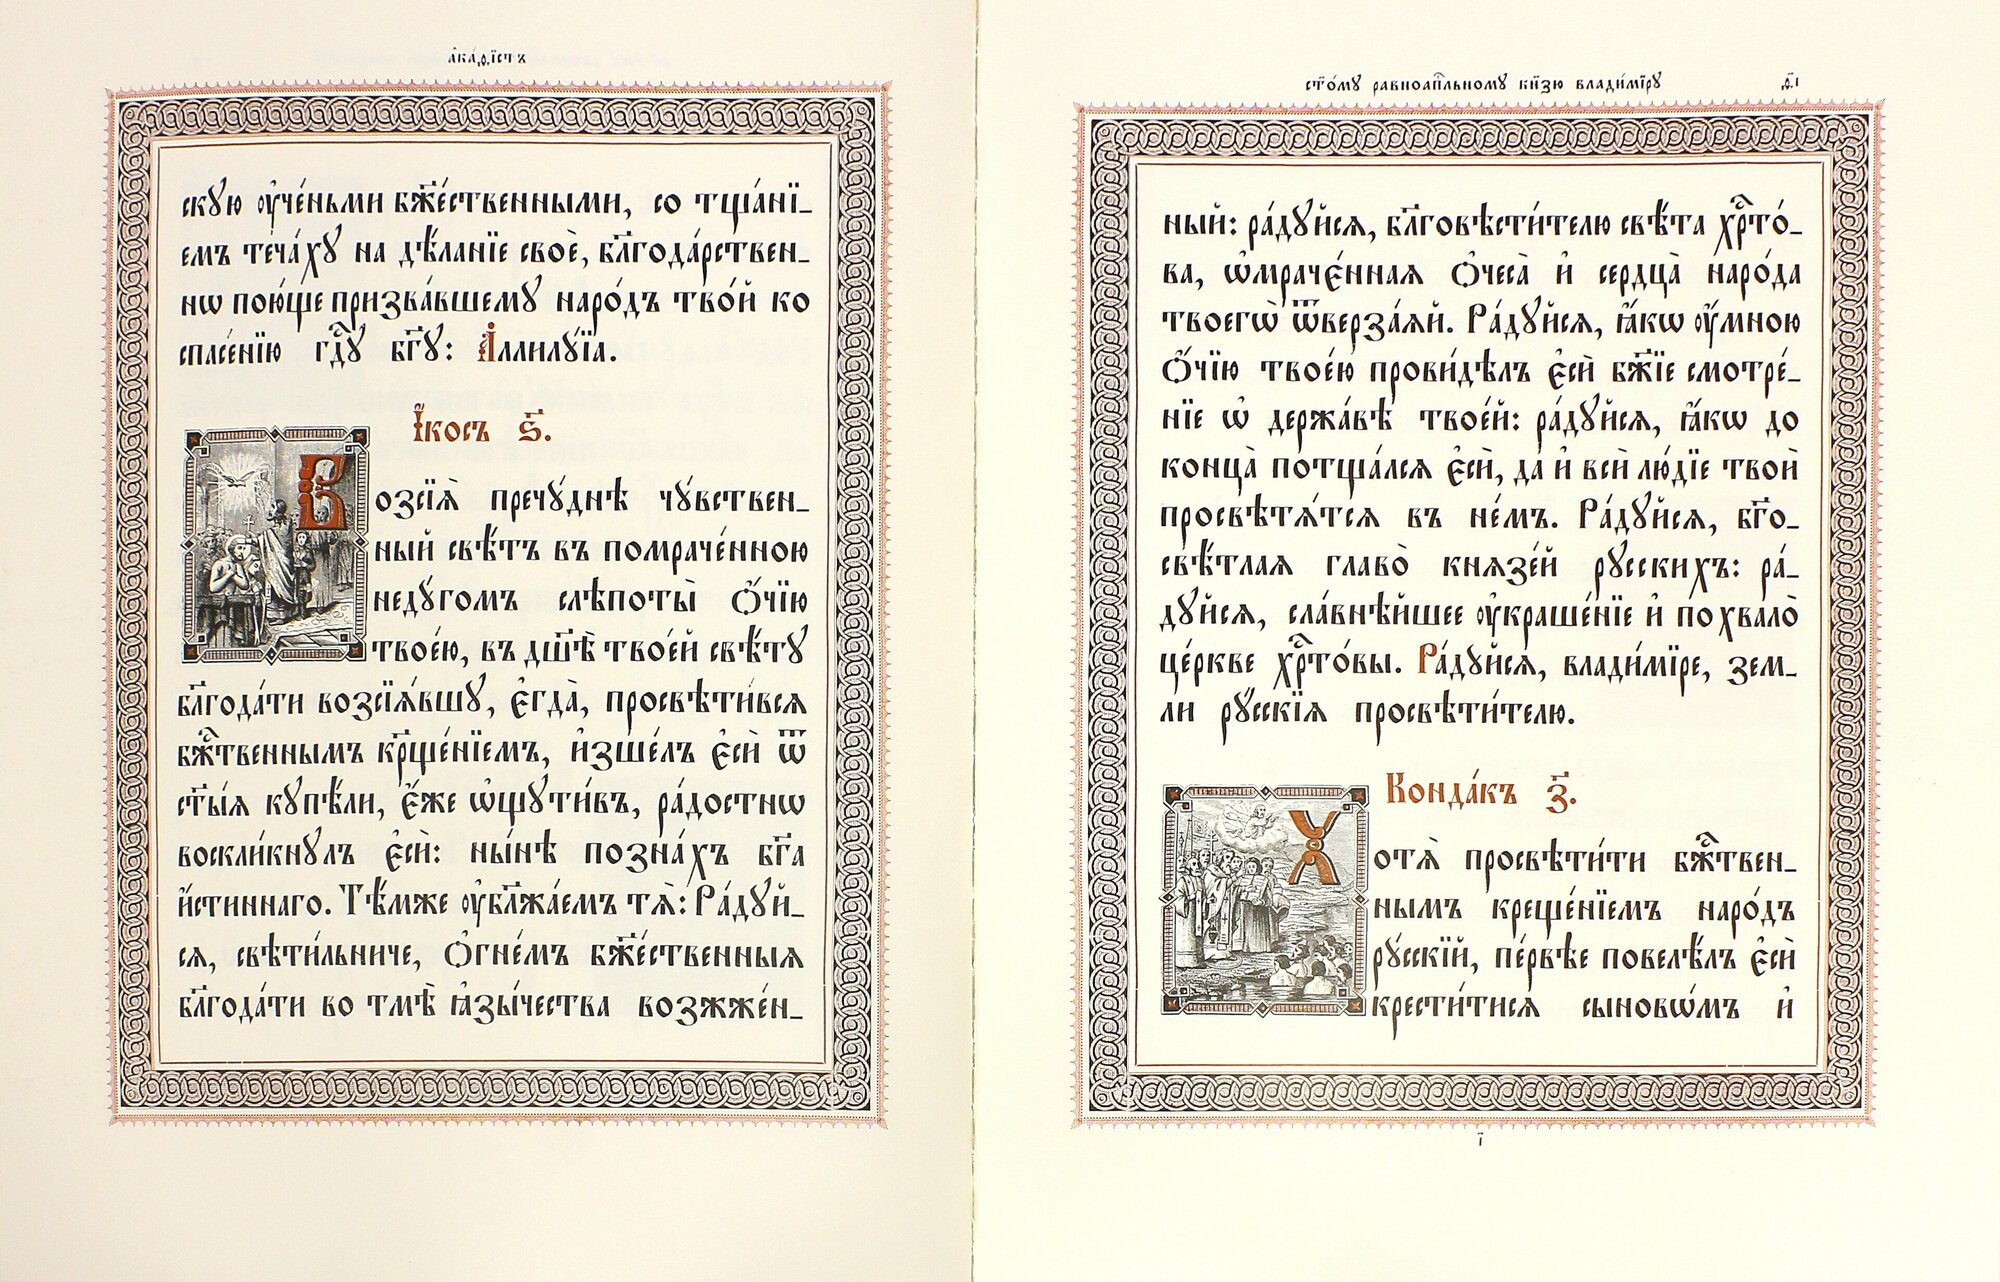 а҆ка́ѳїстъ
скую ᲂу҆че́ньми бж҃е́ственными, со тща́нї_
емъ теча́ху на дѣ́ланїе своѐ, бл҃года́рствен_
нѡ пою́ще призва́вшему наро́дъ тво́й ко
спасе́нїю гдⷭ҇у бг҃у: А҆ллилꙋ́їа.
І҆́косъ ѕ҃.
Возсїѧ̀ пречу́днѣ чу́вствен_
ный свѣ́тъ въ помраче́нною
неду́гомъ слѣпоты̀ ѻ҆́чїю
твое́ю, въ дш҃ѣ̀ твое́й свѣ́ту
бл҃года́ти возсїѧ́вшу, є҆гда̀, просвѣти́всѧ
бж҃́твеннымъ кр҃ще́нїемъ, и҆зше́лъ є҆сѝ ѿ
ст҃ы́ѧ купѣ́ли, є҆́же ѡ҆щути́въ, ра́достнѡ
воскли́кнулъ є҆сѝ: ны́нѣ позна́хъ бг҃а
и҆́стиннаго. Тѣ́мже ᲂу҆бл҃жа́емъ тѧ̀: Ра́дуй_
сѧ, свѣти́льниче, ѻ҆гне́мъ бж҃е́ственныѧ
бл҃года́ти во тмѣ̀ ꙗ҆зы́чества возжже́н_
ст҃о́му равноап҃льному кн҃зю влади́мїру
д҃і
ный: ра́дуйсѧ, бл҃говѣсти́телю свѣ́та хрⷭ҇то́_
ва, ѡ҆мраче́ннаѧ ѻ҆чеса̀ и҆ сердца̀ наро́да
твоегѡ̀ ѿверза́ѧй. Ра́дуйсѧ, ꙗ҆́кѡ ᲂу҆́мною
ѻ҆́чїю твое́ю прови́дѣлъ є҆сѝ бж҃їе смотре́_
нїе ѡ҆ держа́вѣ твое́й: ра́дуйсѧ, ꙗ҆́кѡ до
конца̀ потща́лсѧ є҆сѝ, да и҆ всѝ лю́дїе твоѝ
просвѣтѧ́тсѧ въ не́мъ. Ра́дуйсѧ, бг҃о_
свѣ́тлаѧ главо̀ князе́й русскихъ: ра́_
дуйсѧ, сла́внѣйшее ᲂу҆краше́нїе и҆ похвало̀
це́ркве хрⷭ҇то́вы. Ра́дуйсѧ, влади́мїре, зем_
ли ру́сскїѧ просвѣти́телю.
Конда́къ з҃.
Хотѧ̀ просвѣти́ти бжⷭ҇твен_
нымъ креще́нїемъ наро́дъ
ру́сскїй, пе́рвѣе повелѣ́лъ є҆сѝ
крести́тисѧ сыновѡ́мъ и҆
і҃